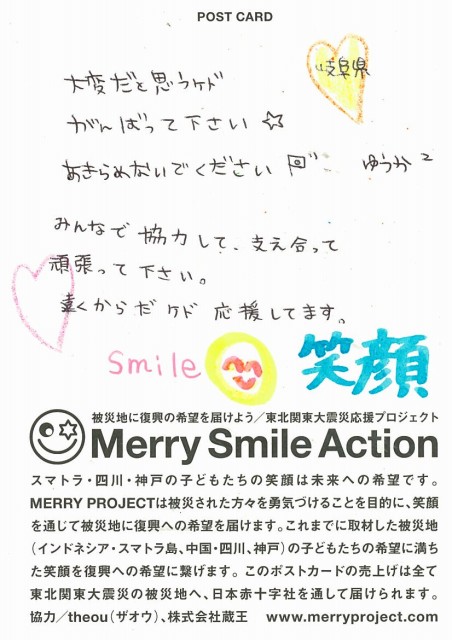 POST CARD
岐阜県
大変だと思うケド
がんばって下さい☆
あきらめないでください
ゆうか
みんなで協力して、支え合って
頑張って下さい。
遠くからだケド応援してます。
smile
笑顔
被災地に復興の希望を届けよう／東北関東大震災応援プロジェクト
Merry Smile Action
スマトラ・四川・神戸の子どもたちの笑顔は未来への希望です。
MERRY PROJECTは被災された方々を勇気づけることを目的に、笑顔
を通じて被災地に復興への希望を届けます。これまでに取材した被災地
（インドネシア・スマトラ島、中国・四川、神戸）の子どもたちの希望に満ち
た笑顔を復興への希望に繋げます。このポストカードの売上げは全て
東北関東大震災の被災地へ、日本赤十字社を通して届けられます。
協力／theou（ザオウ）、株式会社蔵王 www.merryproject.com